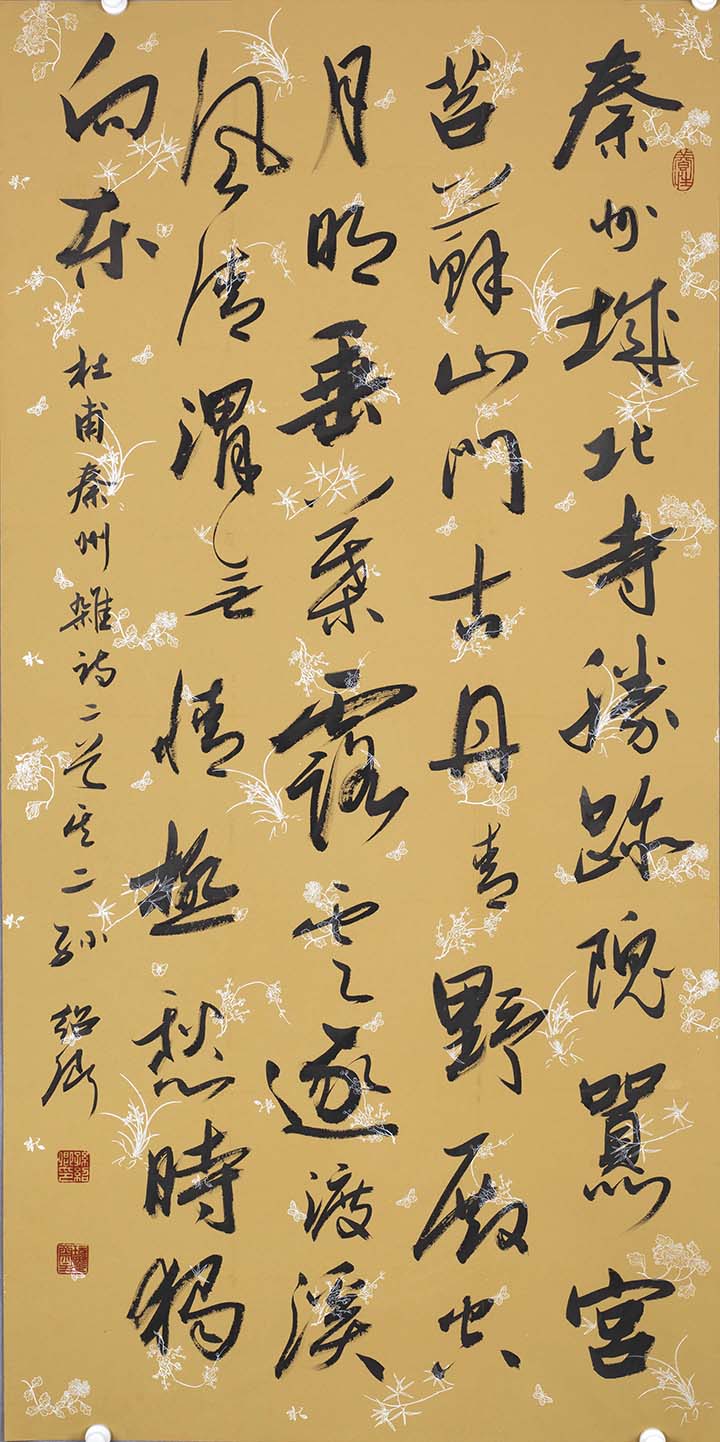 秦州城北寺勝跡隗囂宮
苔蘚山門古丹青野殿空
月明垂葉露雲逐渡溪
風清渭無情極愁時獨
向東
杜甫秦州雜詩二首其二 孫紹卿